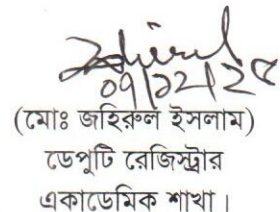 ০৭/১২/২৫
(মোঃ জহিরুল ইসলাম)
ডেপুটি রেজিস্ট্রার
একাডেমিক শাখা।